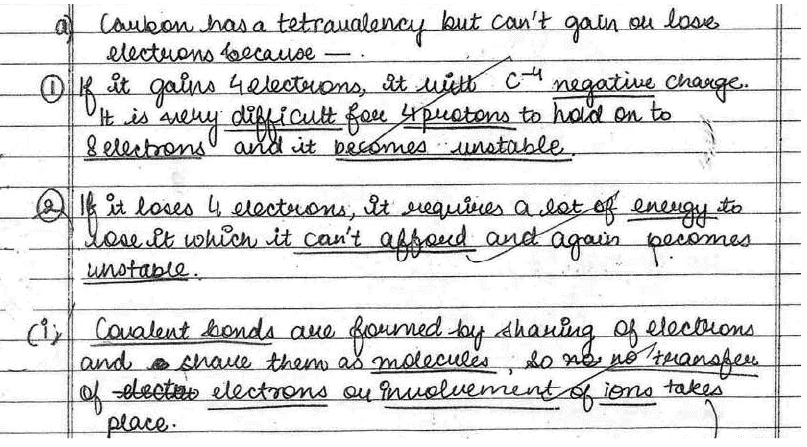 a) Carbon has a tetravalency but can't gain or lose
electrons because — .
① If it gains 4 electrons, it will C⁻⁴ negative charge.
It is very difficult for 4 protons to hold on to
8 electrons and it becomes unstable.
② If it loses 4 electrons, it requires a lot of energy to
lose it which it can't afford and again becomes
unstable.
(i) Covalent bonds are formed by sharing of electrons
and share them as molecules, so no no transfer
of electro electrons or involvement of ions takes
place.